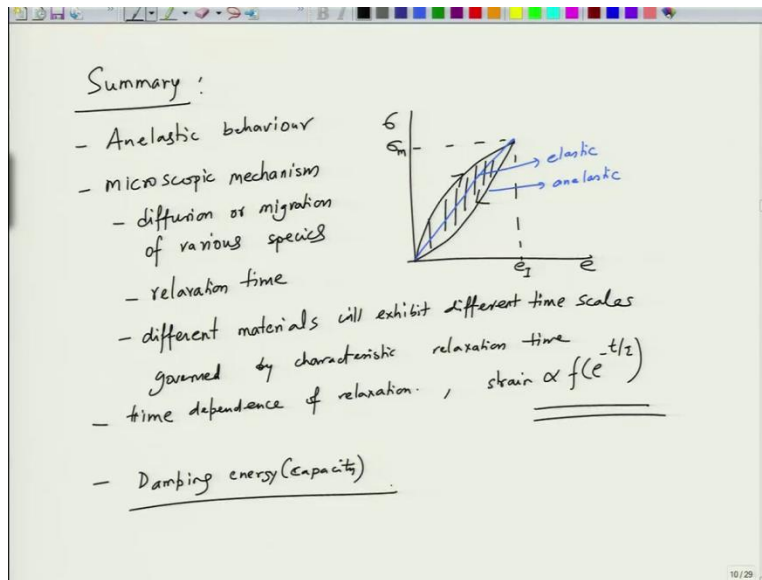 Summary :
- Anelastic behaviour
- microscopic mechanism
- diffusion or migration
of various species
- relaxation time
- different materials will exhibit different time scales
governed by characteristic relaxation time
- time dependence of relaxation. , strain ∝ f(e^-t/τ)
- Damping energy (capacity)
σ
σm
elastic
anelastic
e1
e
10 / 29